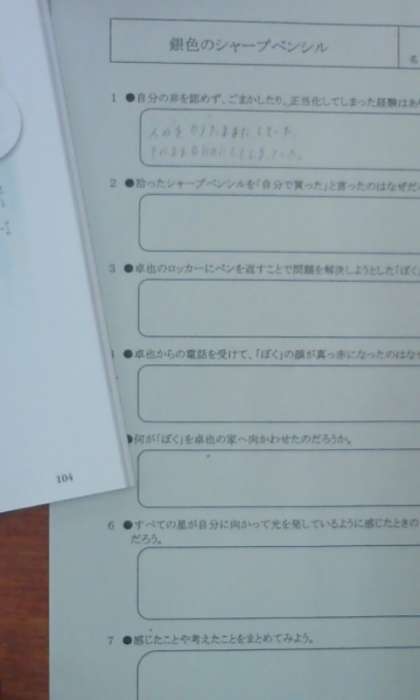 銀色のシャープペンシル
名
1 ●自分の非を認めず、ごまかしたり、正当化してしまった経験はあ
2 ●拾ったシャープペンシルを「自分で買った」と言ったのはなぜだ
3 ●卓也のロッカーにペンを返すことで問題を解決しようとした「ぼく
●卓也からの電話を受けて、「ぼく」の顔が真っ赤になったのはな
●何が「ぼく」を卓也の家へ向かわせたのだろうか。
104
6 ●すべての星が自分に向かって光を発しているように感じたときの
だろう。
7 ●感じたことや考えたことをまとめてみよう。